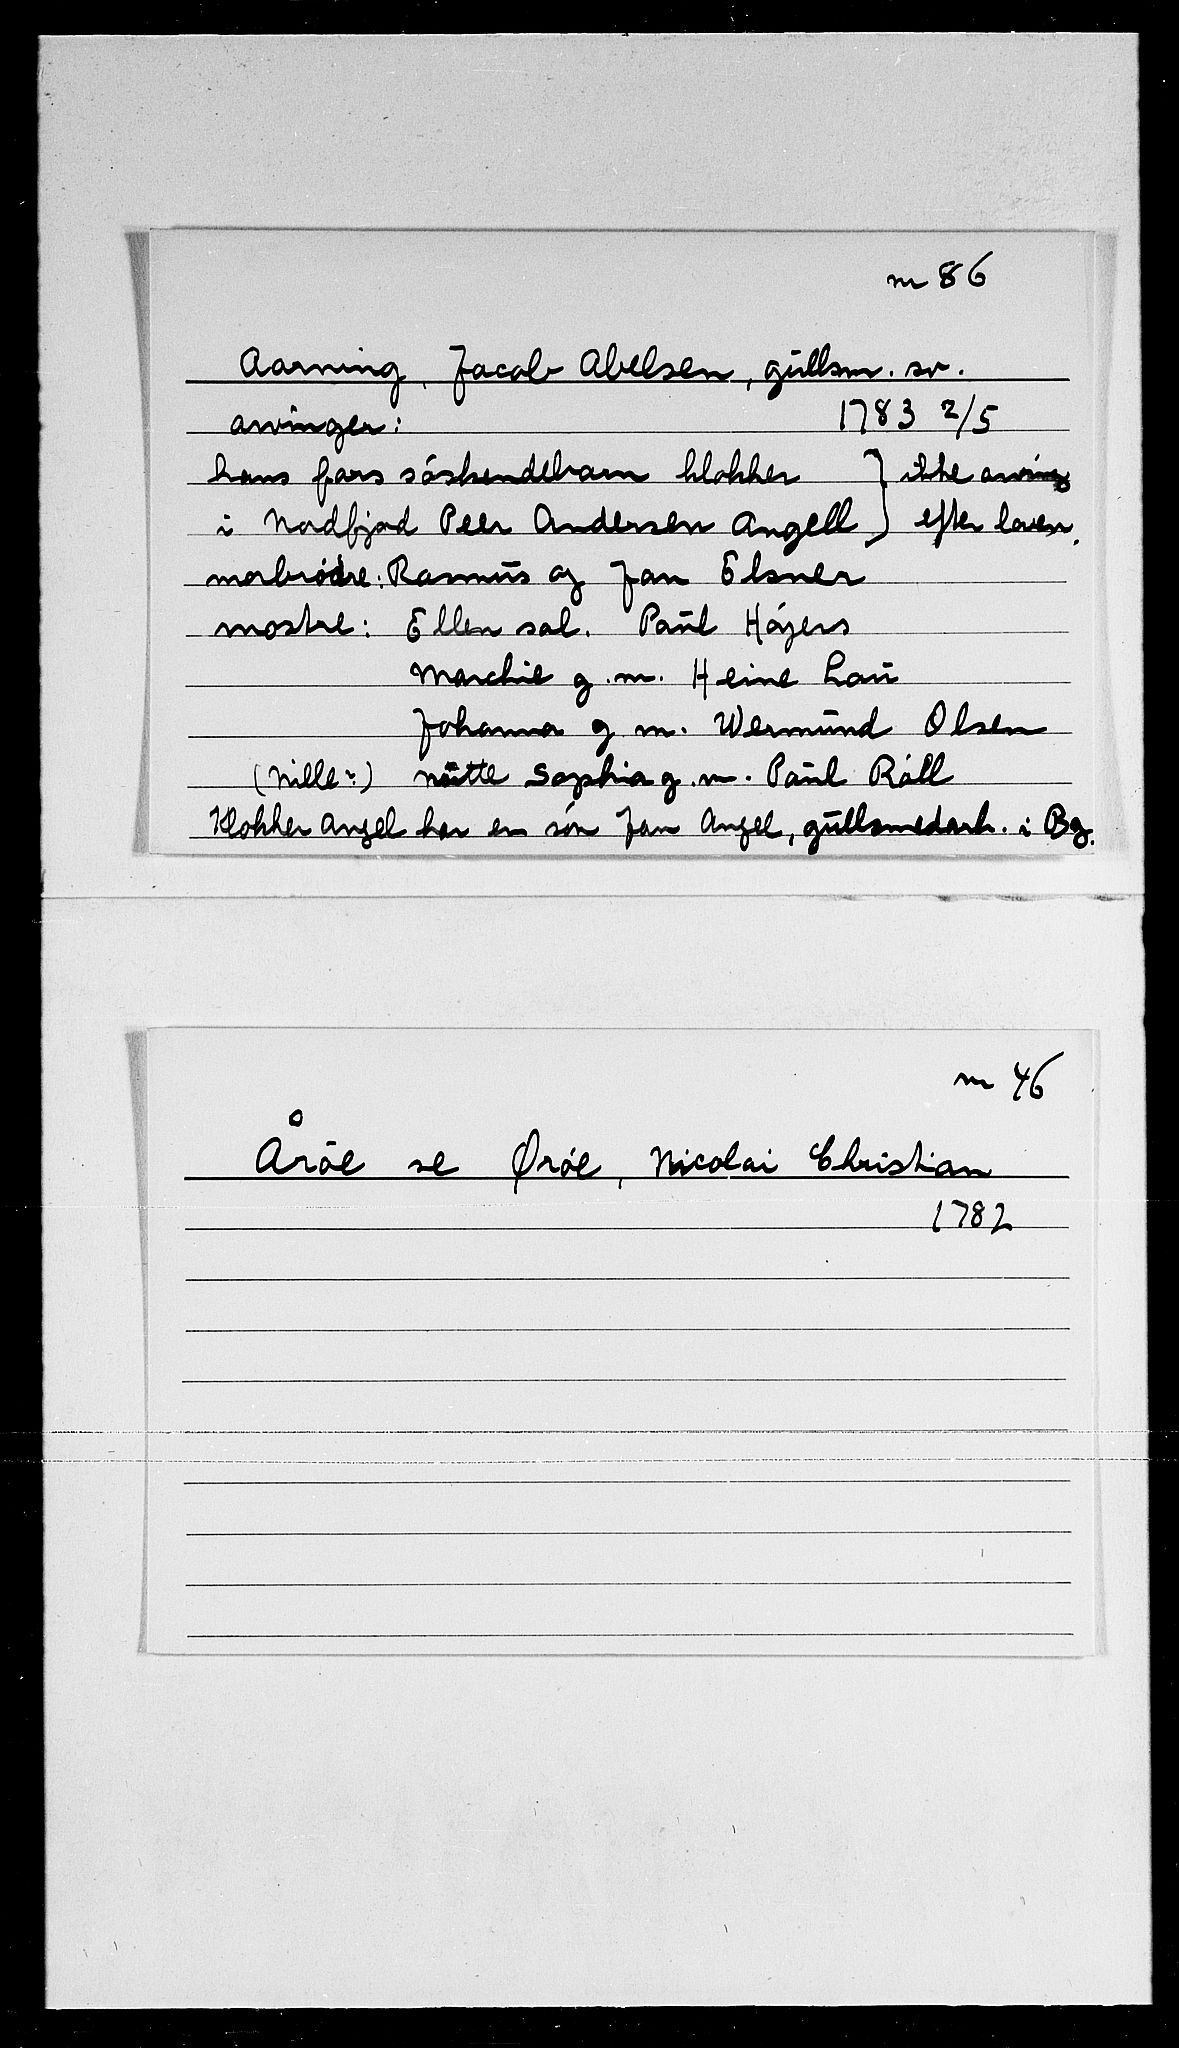 m 86
Aarning, Jacob Abelsen, gullsm. sv.
arvinger: 1783 2/5
hans fars söskendebarn klokker } ikke arving
i Nordfjord Peer Andersen Angell } efter loven.
morbrödre: Rasmus og Jan Elsner
mostre: Ellen sal. Paul Höyers
Marchie g.m. Heine Lau
Johanna g.m. Wermund Olsen
(Nille?) Sophia g.m. Paul Röll
Klokker Angel har en sön Jan Angel, gullsmedarb. i Bg.
m 46
Åröe se Øröe, Nicolai Christian
1782